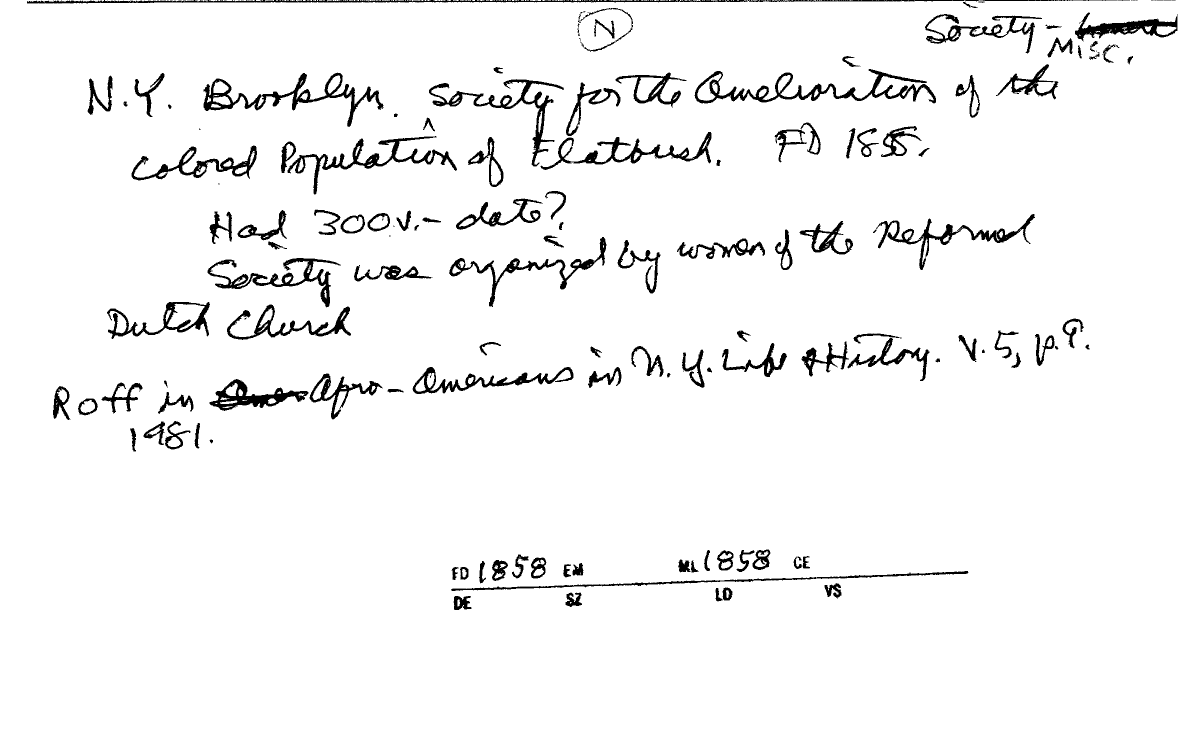 N
Society -
Misc.
N.Y. Brooklyn. Society for the Amelioration of the
Colored Population of Flatbush. FD 1858.
Had 300 v. - date?
Society was organized by women of the Reformed
Dutch Church
Roff in Afro-Americans in N.Y. Life & History. V. 5, p. ?.
1981.
FD 1858 EM ML 1858 CE
DE SZ LD VS